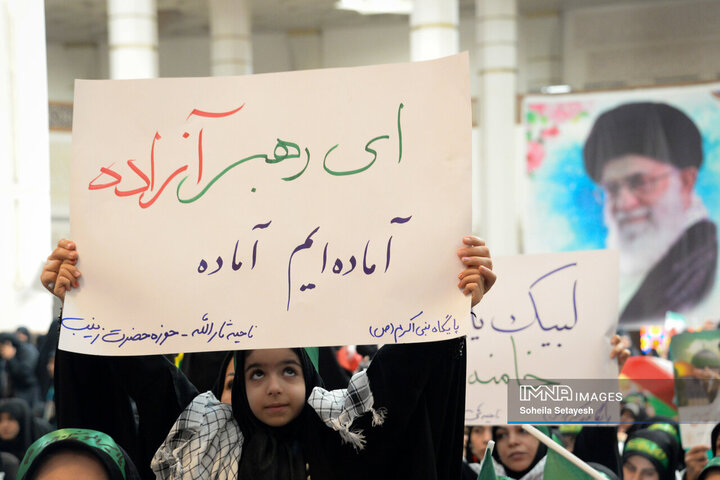 ای رهبر آزاده
آماده ایم آماده
پایگاه نبی اکرم (ص)
ناحیه ثارالله - حوزه حضرت زینب
لبیک یا
خامنه
IMNA IMAGES
Soheila Setayesh
IMNA IMAGES